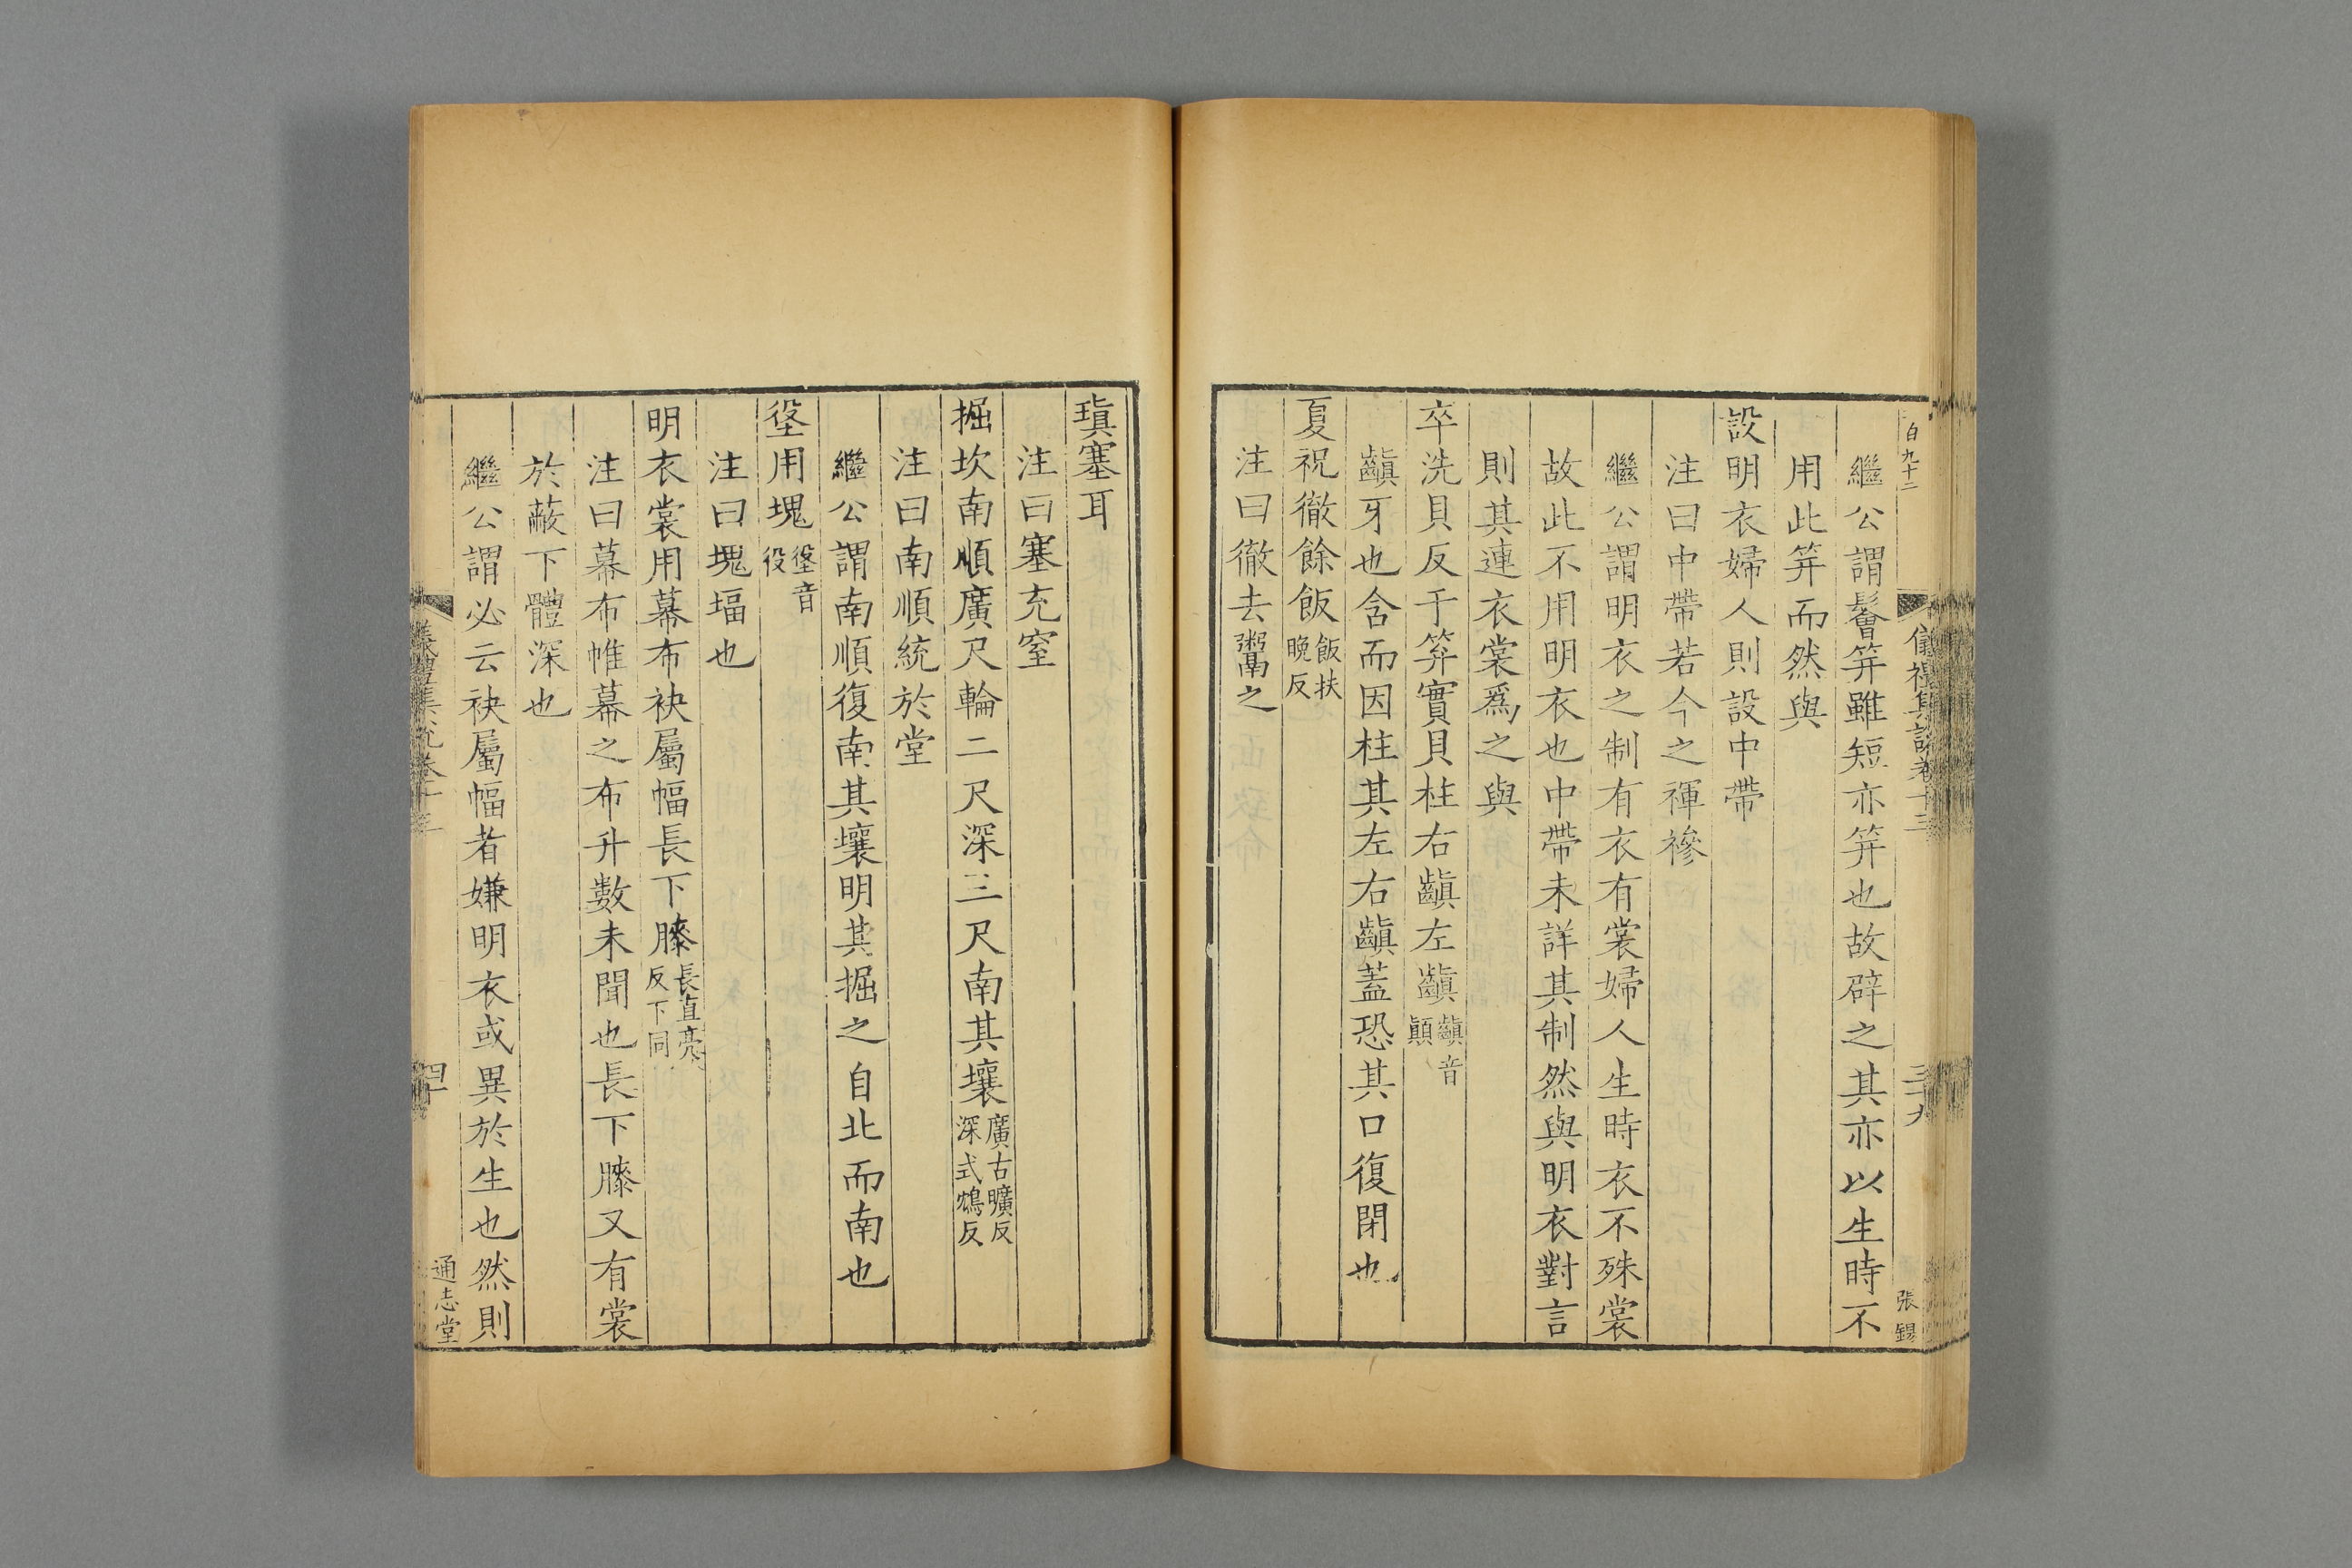 白九十二
儀禮集說卷十三
三十九
張錫
繼公謂鬠笄雖短亦笄也故辟之其亦以生時不
用此笄而然與
設明衣婦人則設中帶
注曰中帶若今之褌襂
繼公謂明衣之制有衣有裳婦人生時衣不殊裳
故此不用明衣也中帶未詳其制然與明衣對言
則其連衣裳爲之與
卒洗貝反于笲實貝柱右齻左齻齻音顚
齻牙也含而因柱其左右齻蓋恐其口復閉也
夏祝徹餘飯飯扶晚反
注曰徹去鬻之
瑱塞耳
注曰塞充窒
掘坎南順廣尺輪二尺深三尺南其壤廣古曠反深式鴆反
注曰南順統於堂
繼公謂南順復南其壤明其掘之自北而南也
垼用塊垼音役
注曰塊堛也
明衣裳用幕布袂屬幅長下膝長直亮反下同
注曰幕布帷幕之布升數未聞也長下膝又有裳
於蔽下體深也
繼公謂必云袂屬幅者嫌明衣或異於生也然則
儀禮集說卷十三
四十
通志堂